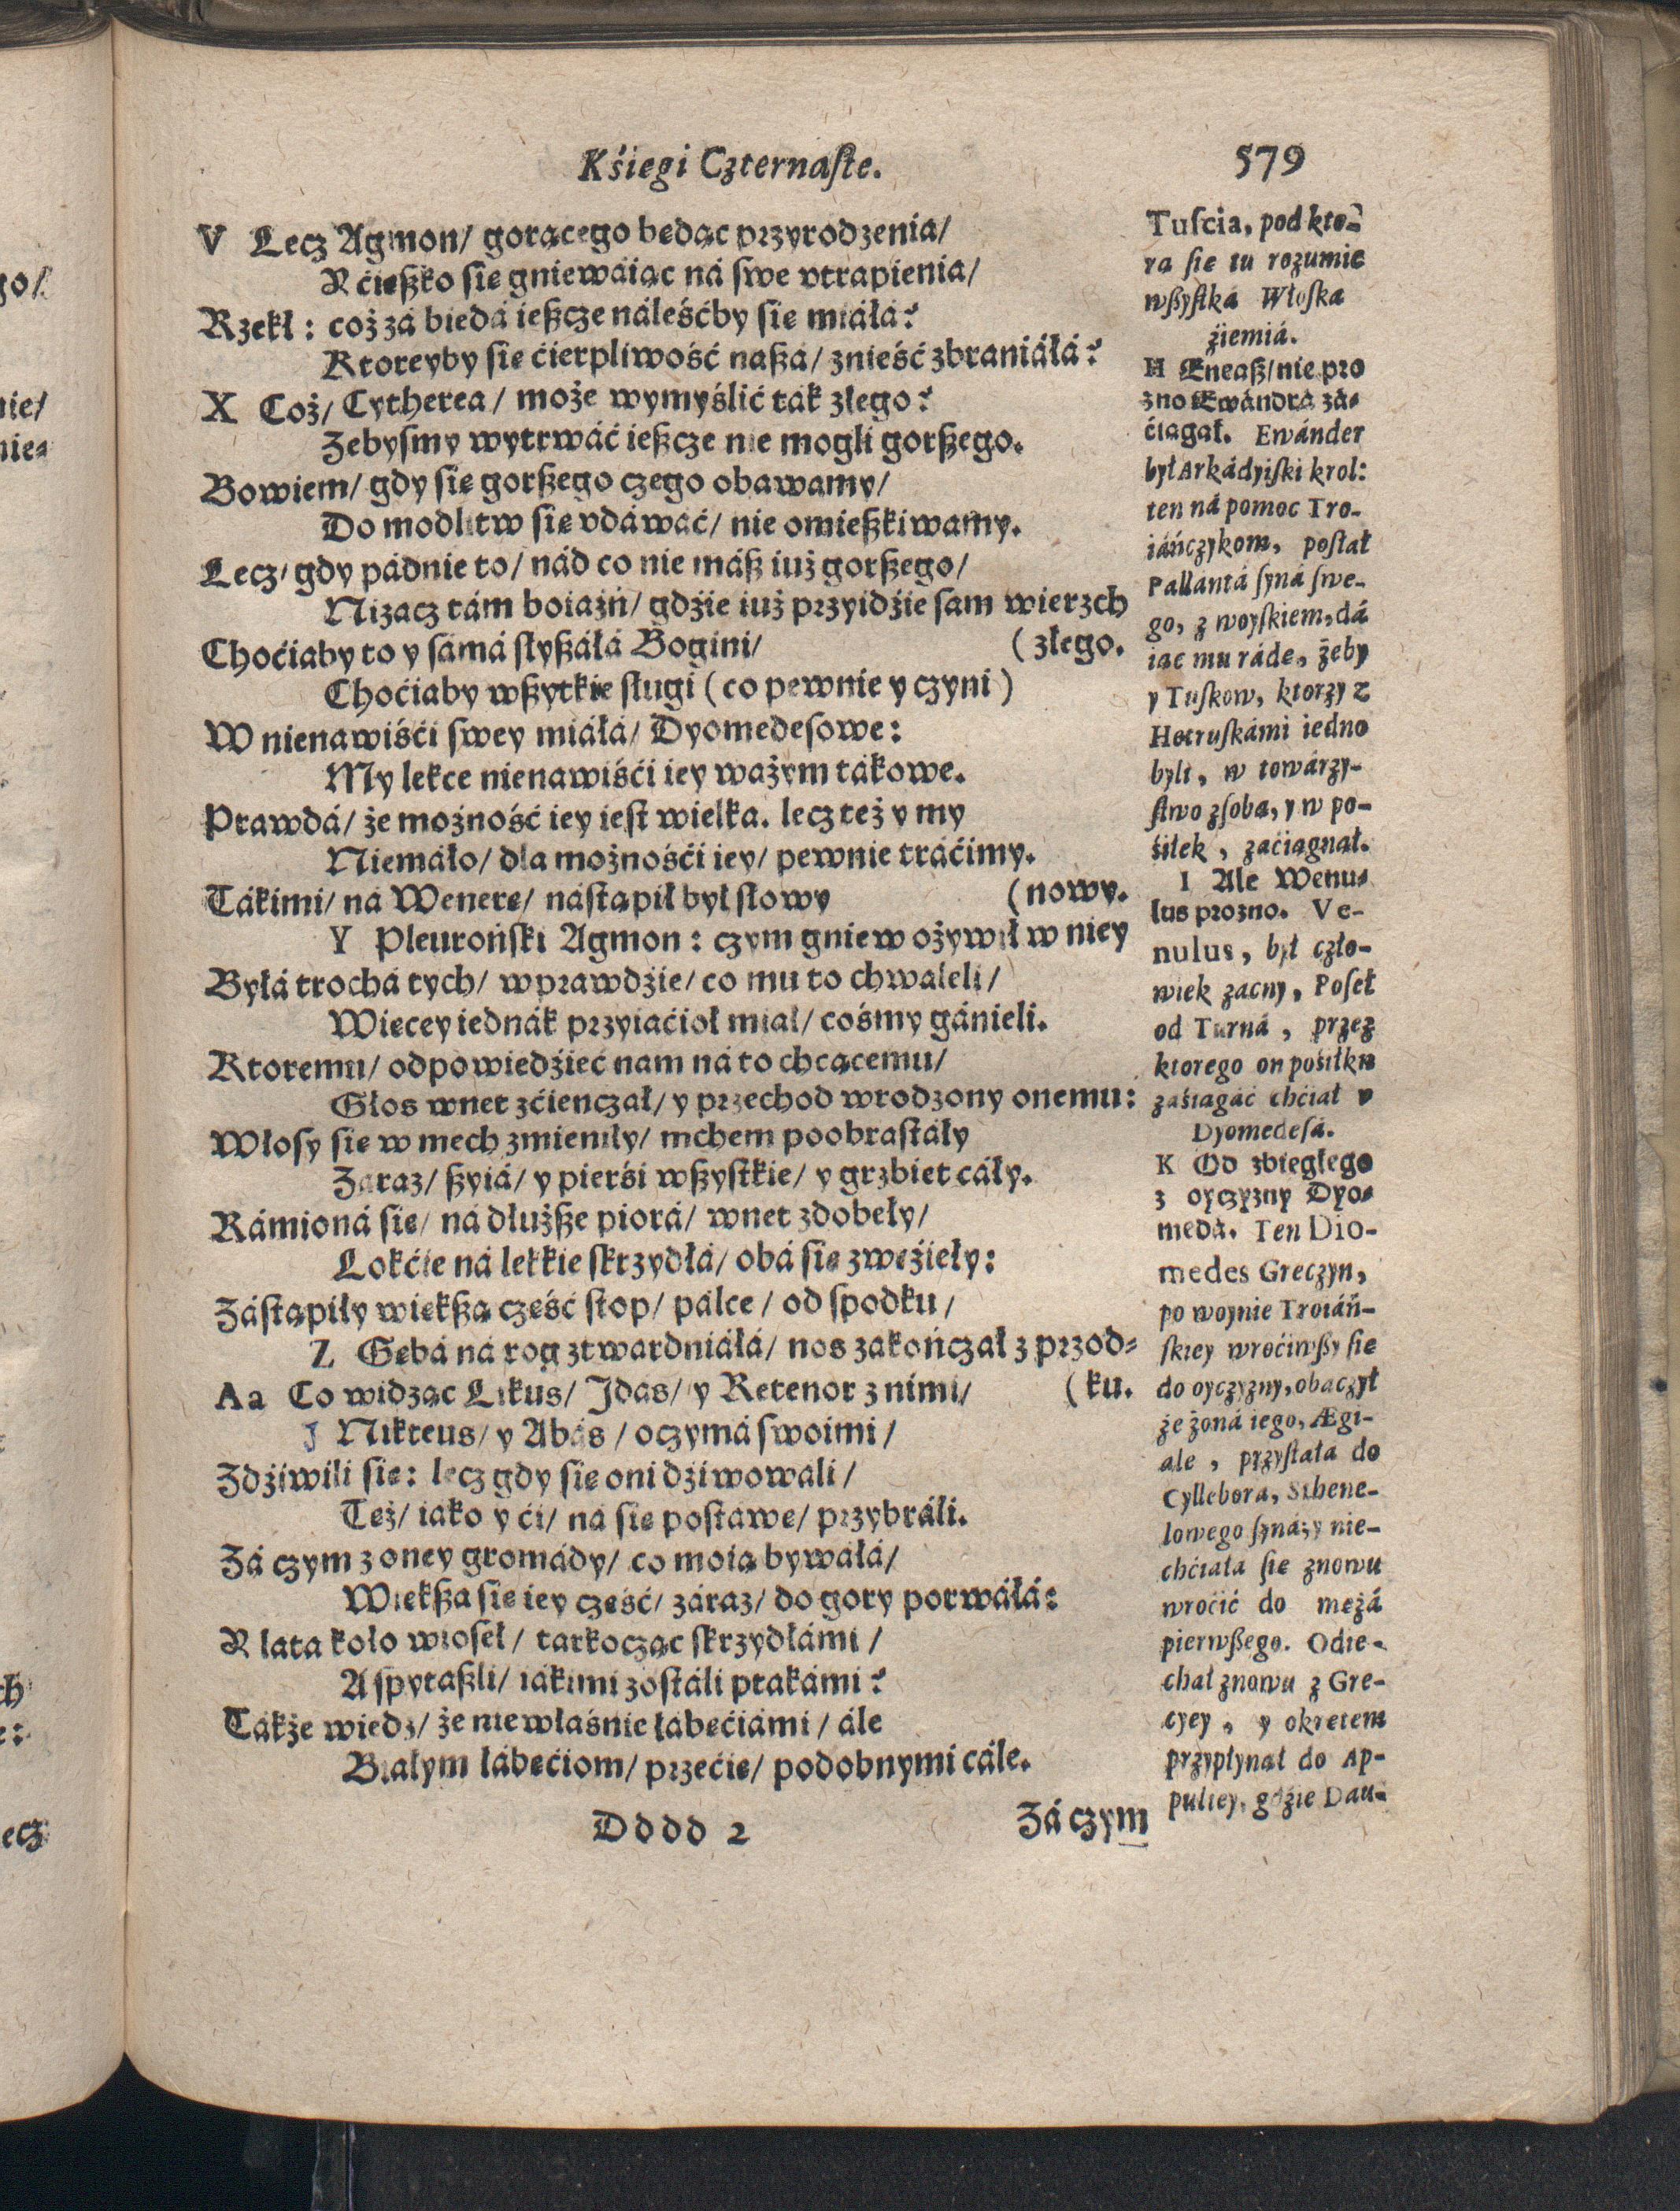 Kśiegi Czternaſte.
579
V Lecz Agmon/ gorącego będąc przyrodzenia/
Y ćięßko się gniewáiąc ná ſwe vtrapienia/
Rzekł: coż zá biedá ießcze náleśćby się miáłá?
Ktoreyby się ćierpliwość naßá/ znieść zbraniáłá?
X Coż/ Cytherea/ może wymyślić ták złego?
Zebyſmy wytrwáć ießcze nie mogli gorßego.
Bowiem/ gdy się gorßego czego obawamy/
Do modlitw się vdáwáć/ nie omießkiwamy.
Lecz/ gdy pádnie to/ nád co nie máß iuż gorßego/
Nizacz tám boiaźń/ gdźie iuż przyidźie ſam wierzch
Choćiaby to y ſámá słyßáłá Bogini/ (złego.
Choćiaby wßytkie sługi (co pewnie y czyni)
W nienawiśći ſwey miáłá/ Dyomedeſowe:
My lekce nienawiśći iey ważym tákowe.
Prawdá/ że możność iey ieſt wielka. lecz też y my
Niemáło/ dla możnośći iey/ pewnie tráćimy.
Tákimi/ ná Wenerę/ náſtąpił był słowy (nowy.
Y Pleuroński Agmon: czym gniew ożywił w niey
Byłá trochá tych/ wprawdźie/ co mu to chwaleli/
Więcey iednák przyiaćioł miał/ cośmy gánieli.
Ktoremu/ odpowiedźieć nam ná to chcącemu/
Głos wnet zćienczał/ y przechod wrodzony onemu:
Włosy się w mech zmieniły/ mchem poobraſtáły
Zaraz/ ßyiá/ y pierśi wßyſtkie/ y grzbiet cáły.
Rámioná się/ ná dłużße piorá/ wnet zdobeły/
Lokćie ná lekkie ſkrzydłá/ obá się zwęźieły:
Záſtąpiły więkßą część ſtop/ pálce/ od ſpodku/
Z Gębá ná rog ztwardniáłá/ nos zakończał z przod-
Aa Co widząc Likus/ Idas/ y Retenor z nimi/ (ku.
Nikteus/ y Abás/ oczymá ſwoimi/
Zdźiwili się: lecz gdy się oni dźiwowali/
Też/ iako y ći/ ná się poſtawę/ przybráli.
Zá czym z oney gromády/ co moią bywáłá/
Więkßa się iey część/ záraz/ do gory porwáłá:
Y lata koło wioseł/ tarkocząc ſkrzydłámi/
A ſpytaßli/ iákimi zoſtáli ptakámi?
Tákże wiedz/ że niewłaśnie łabęćiámi/ ále
Białym łábęćiom/ przećię/ podobnymi cále.
Dddd 2
Zá czym
Tuſcia, pod kto-
rą się tu rozumie
wßyſtká Włoſka
źiemiá.
H Eneaß/ nie pro
zno Ewándrá zá-
ćiągał. Ewánder
był Arkádyiſki krol:
ten ná pomoc Tro-
iáńczykom, posłał
Pallantá ſyná ſwe-
go, z woyſkiem, dá
iąc mu rádę, żeby
y Tuſkow, ktorzy z
Hetruſkámi iedno
byli, w towárzy-
ſtwo z ſobą, y w po-
śiłek, zaćiągnął.
I Ale Wenu-
lus prozno. Ve-
nulus, był czło-
wiek zacny, Poſeł
od Turná, przez
ktorego on pośiłku
zaśiągáć chćiał v
Dyomedeſá.
K Od zbiegłego
z oyczyzny Dyo-
medá. Ten Dio-
medes Greczyn,
po woynie Troiáń-
ſkiey wroćiwßy się
do oyczyzny, obaczył
że żoná iego, Ægi-
ale, przyſtała do
Cyllebora, Sthene-
lowego ſyná; y nie-
chćiała się znowu
wroćić do mężá
pierwßego. Odie-
chał znowu z Gre-
cyey, y okrętem
przypłynął do Ap-
puliey, gdźie Dau-